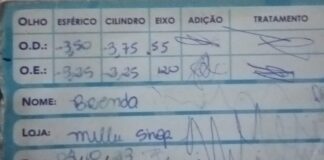 OLHO ESFÉRICO CILINDRO EIXO ADIÇÃO TRATAMENTO
O.D.: -3,50 -3,75 55
O.E.: -3,25 -3,25 120
NOME: Brenda
LOJA: Millu Shop